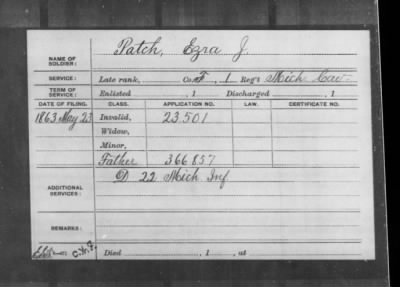 NAME OF SOLDIER: Patch, Ezra J.
SERVICE: Late rank, Co. F, 1 Reg't Mich Cav.
TERM OF SERVICE: Enlisted , 1 Discharged , 1
DATE OF FILING. CLASS. APPLICATION NO. LAW. CERTIFICATE NO.
1863 May 23 Invalid, 23.501
Widow,
Minor,
Father 366857
ADDITIONAL SERVICES: D 22 Mich Inf
REMARKS:
Died , 1 , at